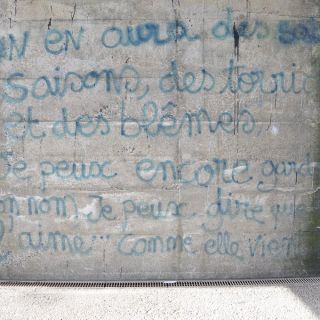 on en aura des
saisons, des torri
et des blêmes,
Je peux encore gard
on nom, Je peux dire que
j'aime... Comme elle vien